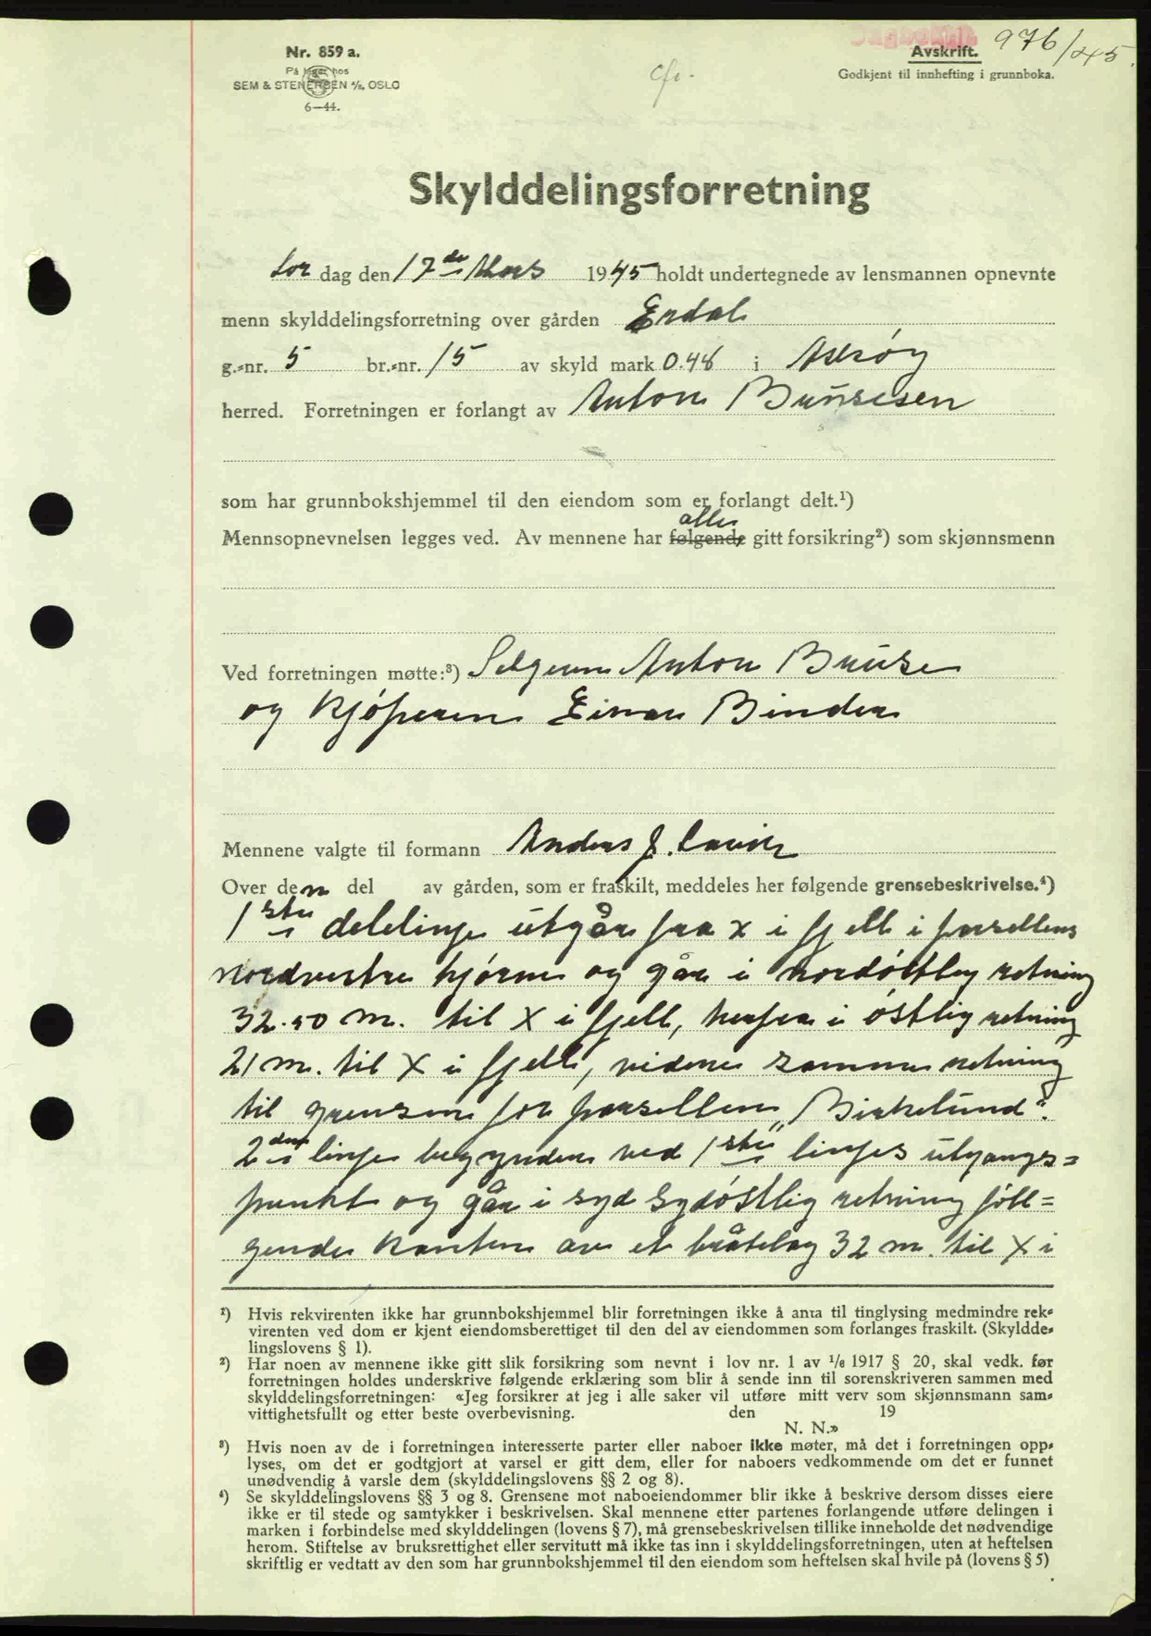 Nr. 859 a.
På lager hos
SEM & STENERSEN A/S, OSLO
6—44.
Avskrift. 976/45.
Godkjent til innhefting i grunnboka.
Skylddelingsforretning
Lør dag den 17de Mars 1945 holdt undertegnede av lensmannen opnevnte
menn skylddelingsforretning over gården Erdal
g.-nr. 5 br.-nr. 15 av skyld mark 0.48 i Askøy
herred. Forretningen er forlangt av Anton
som har grunnbokshjemmel til den eiendom som er forlangt delt.¹)
alle
Mennsopnevnelsen legges ved. Av mennene har følgende gitt forsikring²) som skjønnsmenn
Ved forretningen møtte:³) Selgeren Anton Bruse
og Kjøperen Einar Binder
Mennene valgte til formann Anders J.
Over den del av gården, som er fraskilt, meddeles her følgende grensebeskrivelse.⁴)
1ste delelinje utgår fra x i fjell i parsellens
nordvestre hjørne og går i nordøstleg retning
32.50 m. til X i fjell, herfra i østlig retning
21 m. til X i fjell, videre samme retning
til grensen for parsellen „Birkelund".
2den linje begynder ved 1ste linjes utgangs=
punkt og går i syd sydøstlig retning føll=
gende kanten av et bråtelag 32 m. til X i
¹) Hvis rekvirenten ikke har grunnbokshjemmel blir forretningen ikke å anta til tinglysing medmindre rek-
virenten ved dom er kjent eiendomsberettiget til den del av eiendommen som forlanges fraskilt. (Skyldde-
lingslovens § 1).
²) Har noen av mennene ikke gitt slik forsikring som nevnt i lov nr. 1 av ¹/₆ 1917 § 20, skal vedk. før
forretningen holdes underskrive følgende erklæring som blir å sende inn til sorenskriveren sammen med
skylddelingsforretningen: «Jeg forsikrer at jeg i alle saker vil utføre mitt verv som skjønnsmann sam-
vittighetsfullt og etter beste overbevisning. den 19
N. N.»
³) Hvis noen av de i forretningen interesserte parter eller naboer ikke møter, må det i forretningen opp-
lyses, om det er godtgjort at varsel er gitt dem, eller for naboers vedkommende om det er funnet
unødvendig å varsle dem (skylddelingslovens §§ 2 og 8).
⁴) Se skylddelingslovens §§ 3 og 8. Grensene mot naboeiendommer blir ikke å beskrive dersom disses eiere
ikke er til stede og samtykker i beskrivelsen. Skal mennene etter partenes forlangende utføre delingen i
marken i forbindelse med skylddelingen (lovens § 7), må grensebeskrivelsen tillike inneholde det nødvendige
herom. Stiftelse av bruksrettighet eller servitutt må ikke tas inn i skylddelingsforretningen, uten at heftelsen
skriftlig er vedtatt av den som har grunnbokshjemmel til den eiendom som heftelsen skal hvile på (lovens § 5)